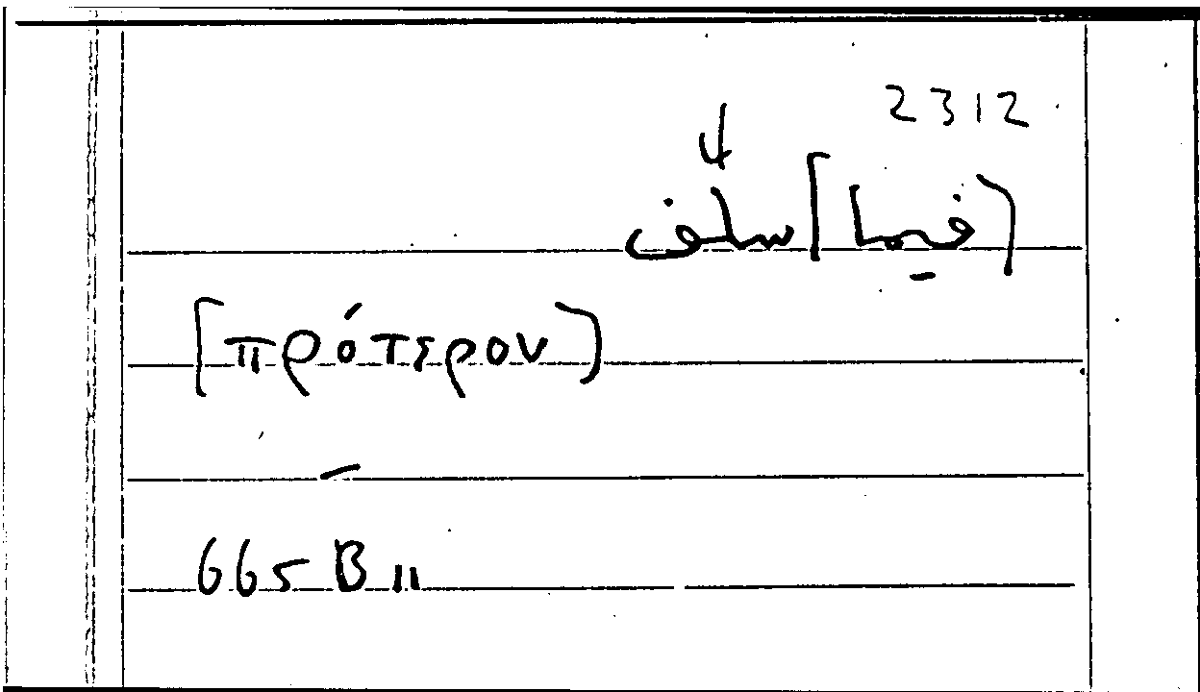 2312
↓
(فيما] سلف
[πρότερον)
–
665 B 11